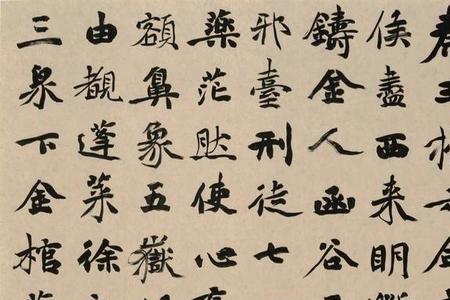 侯盡西来明
鑄金人函谷
邪臺刑徒七
藥茫然使心
額鼻象五嶽
由覩蓬萊徐
三泉下金棺